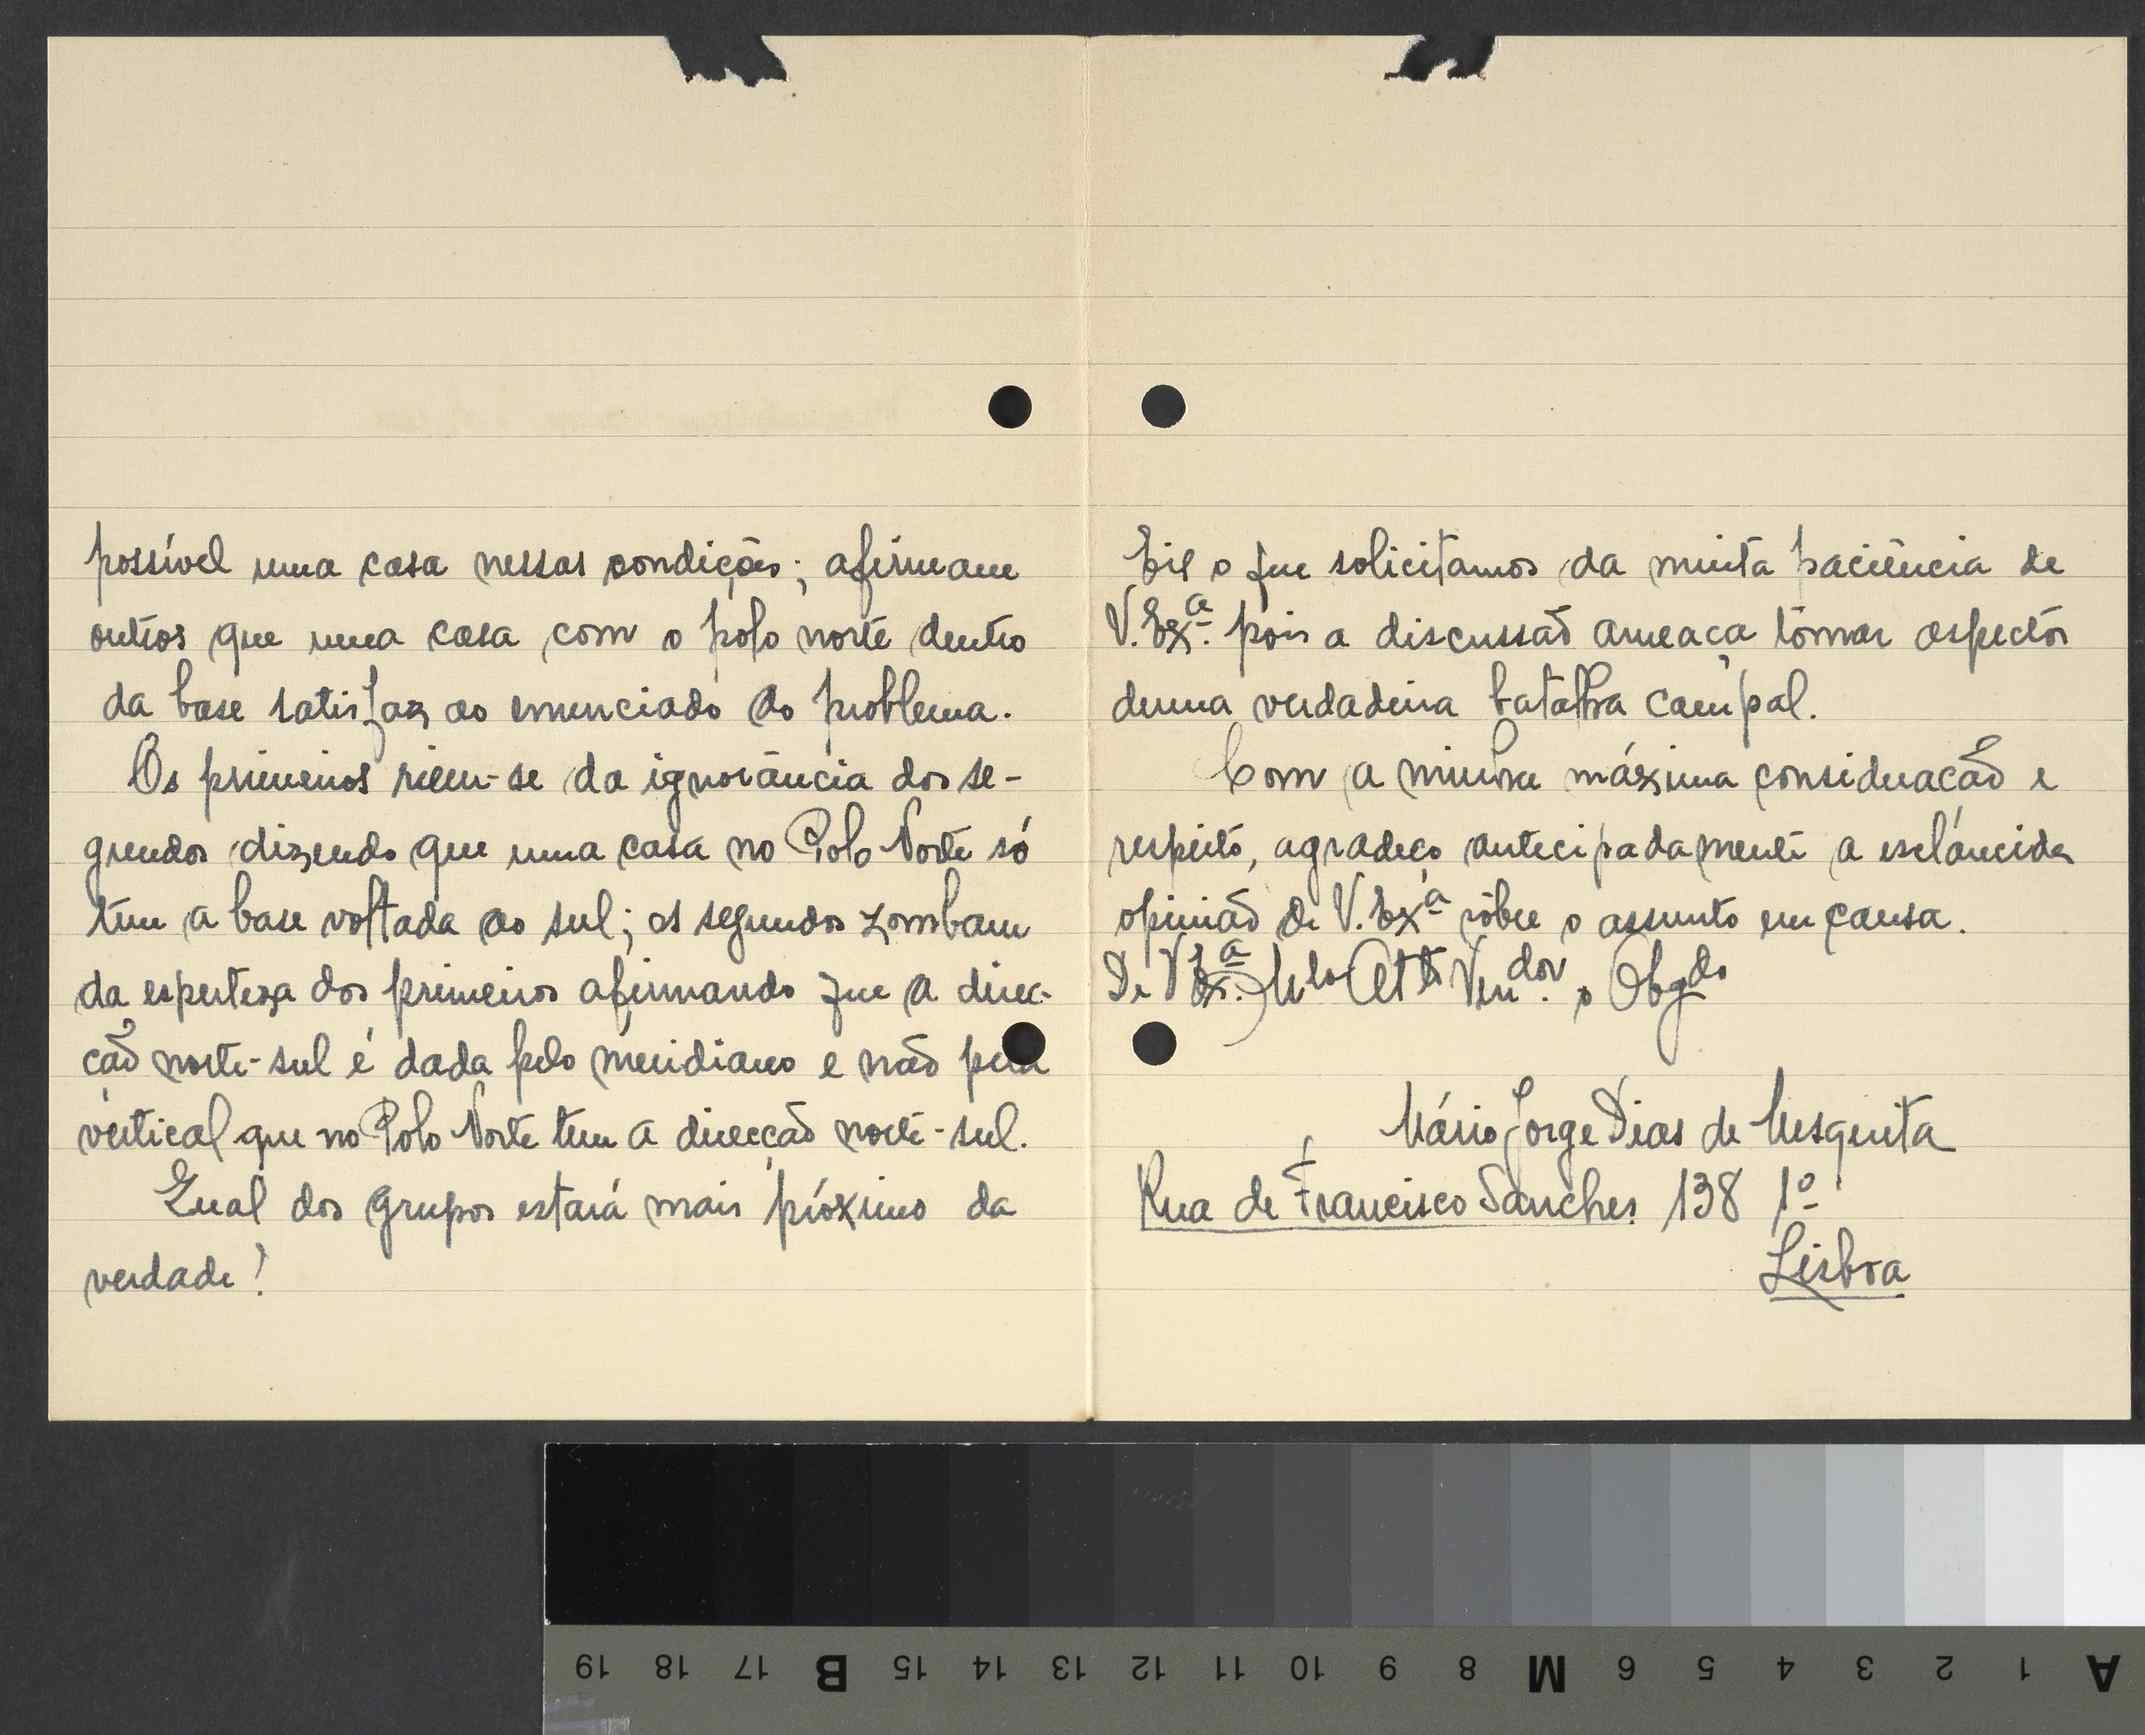 possível uma casa nessas condições; afirmam
outros que uma casa com o polo norte dentro
da base satisfaz ao enunciado do problema.
Os primeiros riem-se da ignorância dos se-
gundos dizendo que uma casa no Polo Norte só
tem a base voltada ao sul; os segundos zombam
da esperteza dos primeiros afirmando que a direc-
ção norte-sul é dada pelo meridiano e não pela
vertical que no Polo Norte tem a direcção norte-sul.
Qual dos grupos estará mais próximo da
verdade?
Eis o que solicitamos da muita paciência de
V. Exª. pois a discussão ameaça tômar aspectos
duma verdadeira batalha campal.
Com a minha máxima consideração e
respeito, agradeço antecipadamente a esclarecida
opinião de V. Exª sôbre o assunto em causa.
De V. Exª. Mto Attº Vendor. e Obgdo
Mário Jorge Dias de Mesquita
Rua de Francisco Sanches 138 1º
Lisboa
19 18 17 B 15 14 13 12 11 10 9 8 M 6 5 4 3 2 1 A